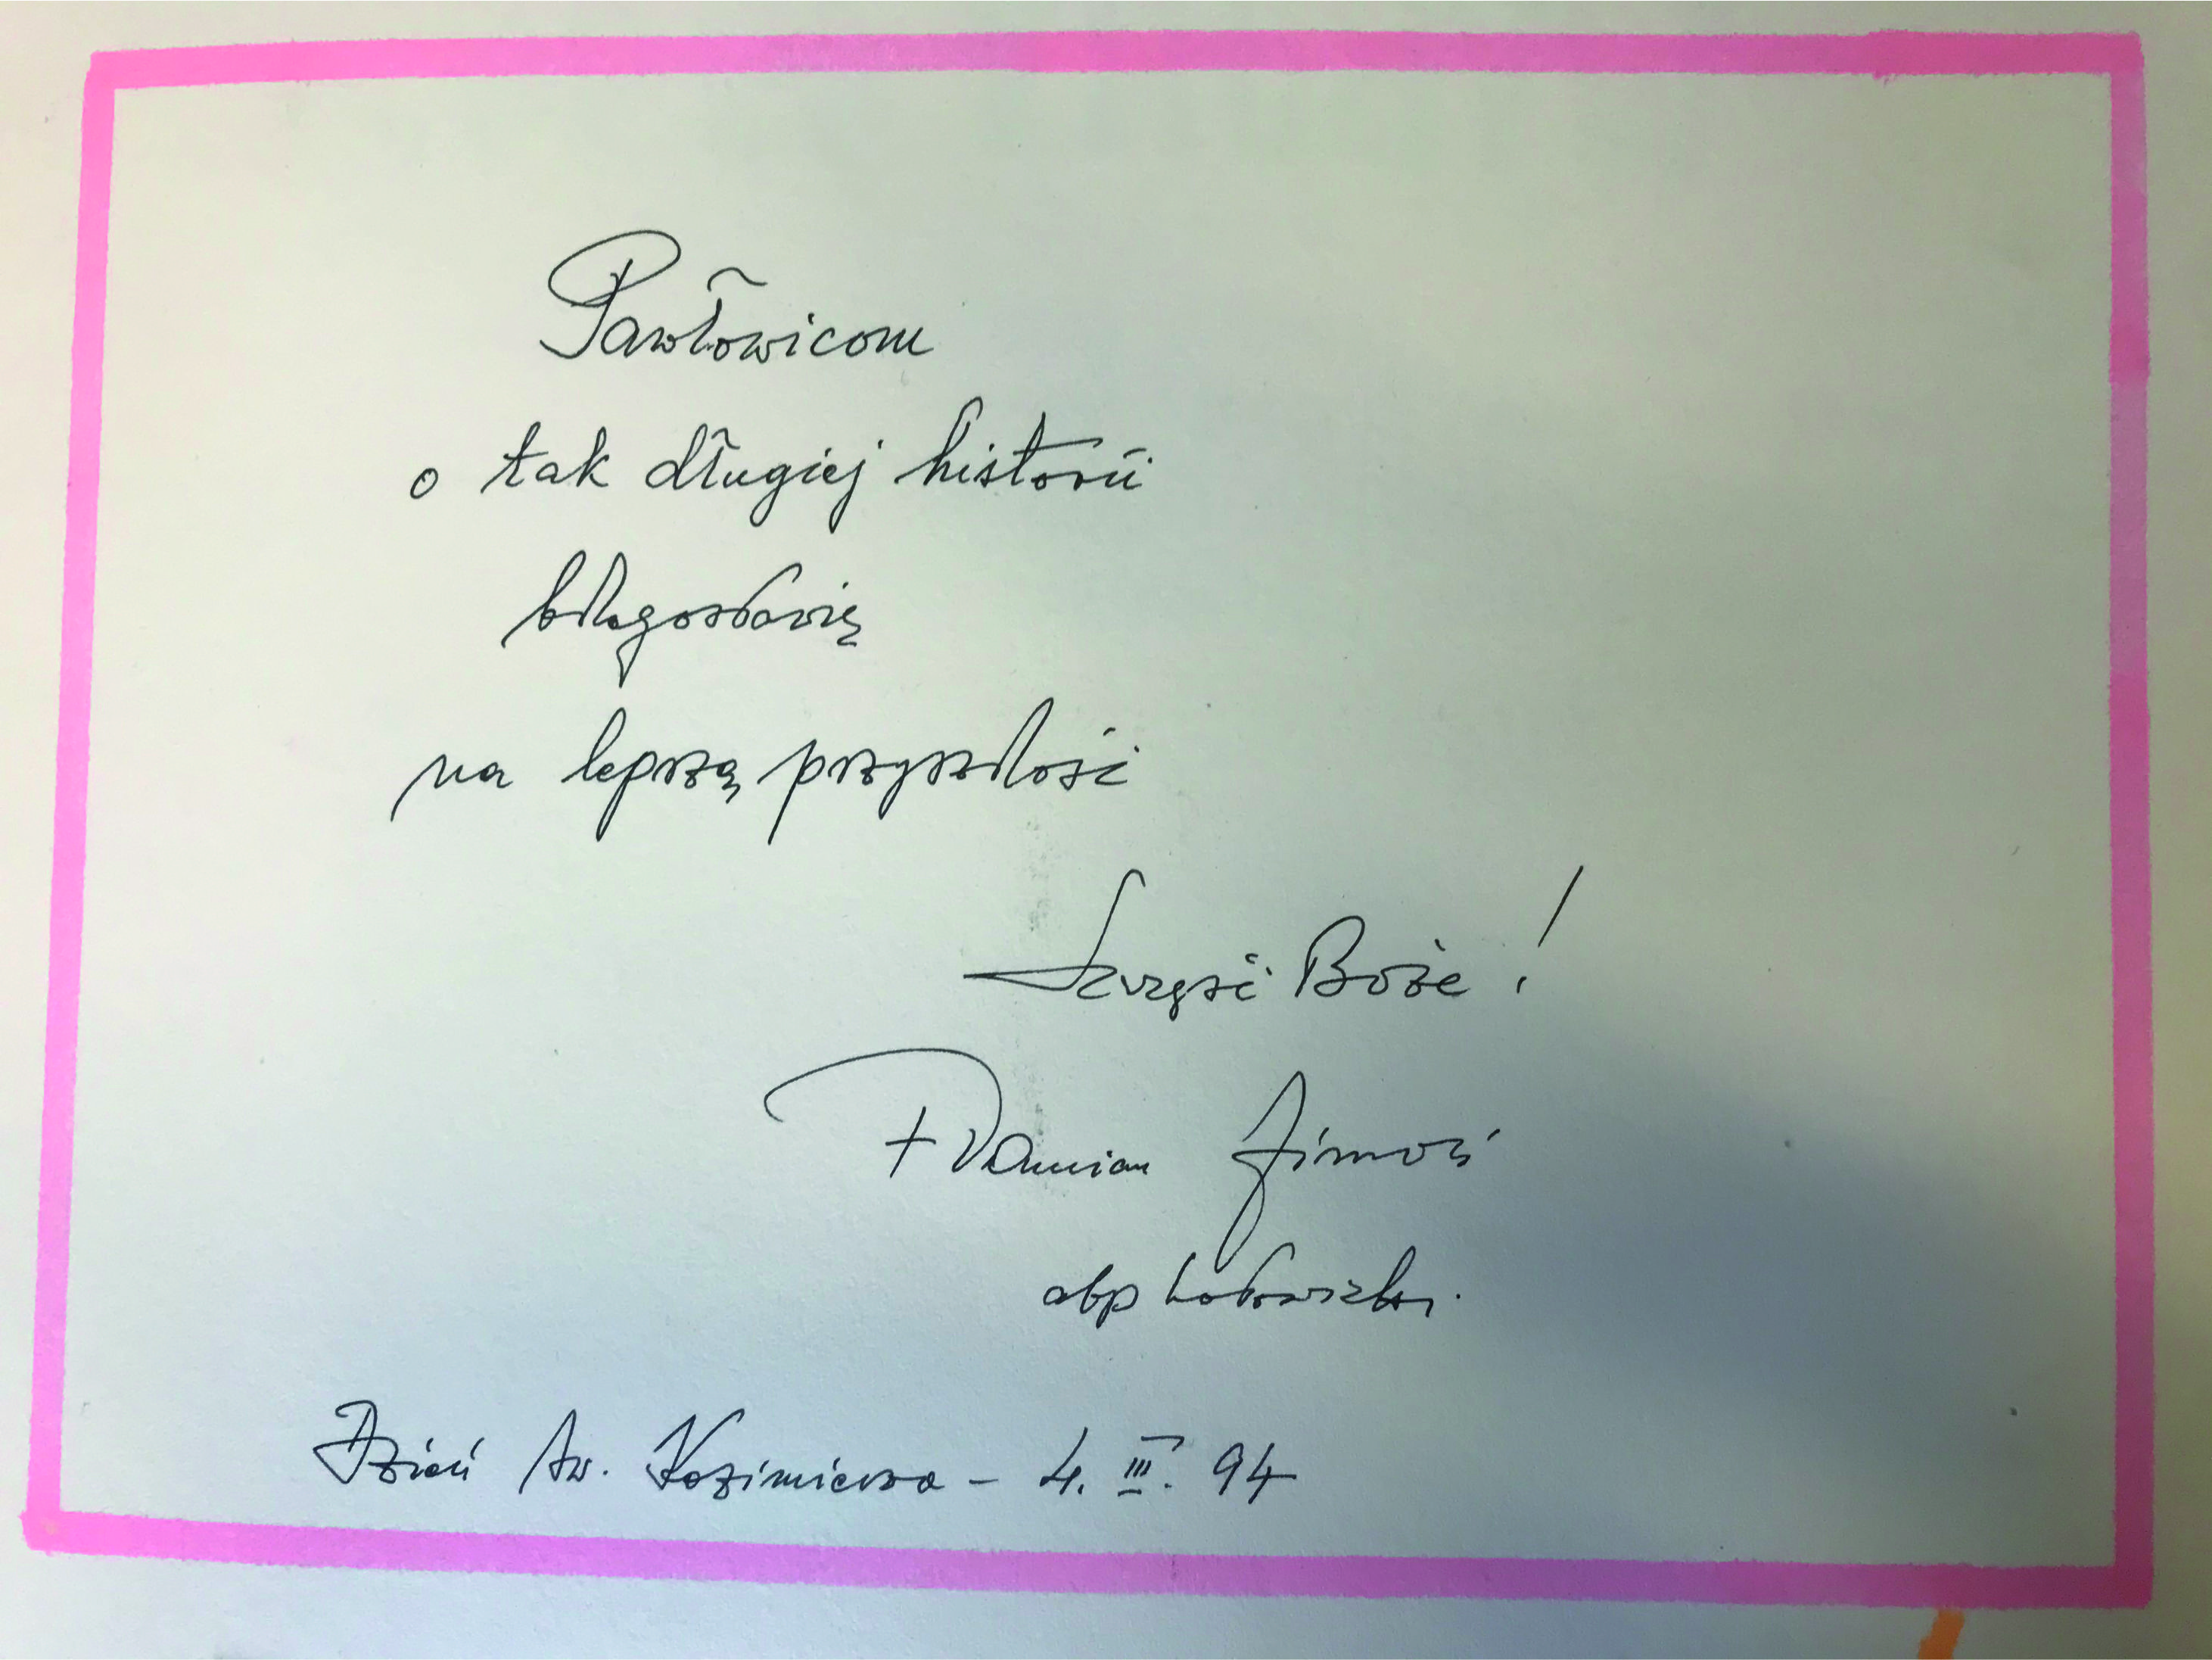 Pawłowicom
o tak długiej historii
błogosławię
na lepszą przyszłość
Szczęść Boże!
+ Damian Zimoń
abp katowicki.
Dzień św. Kazimierza - 4. III. 94